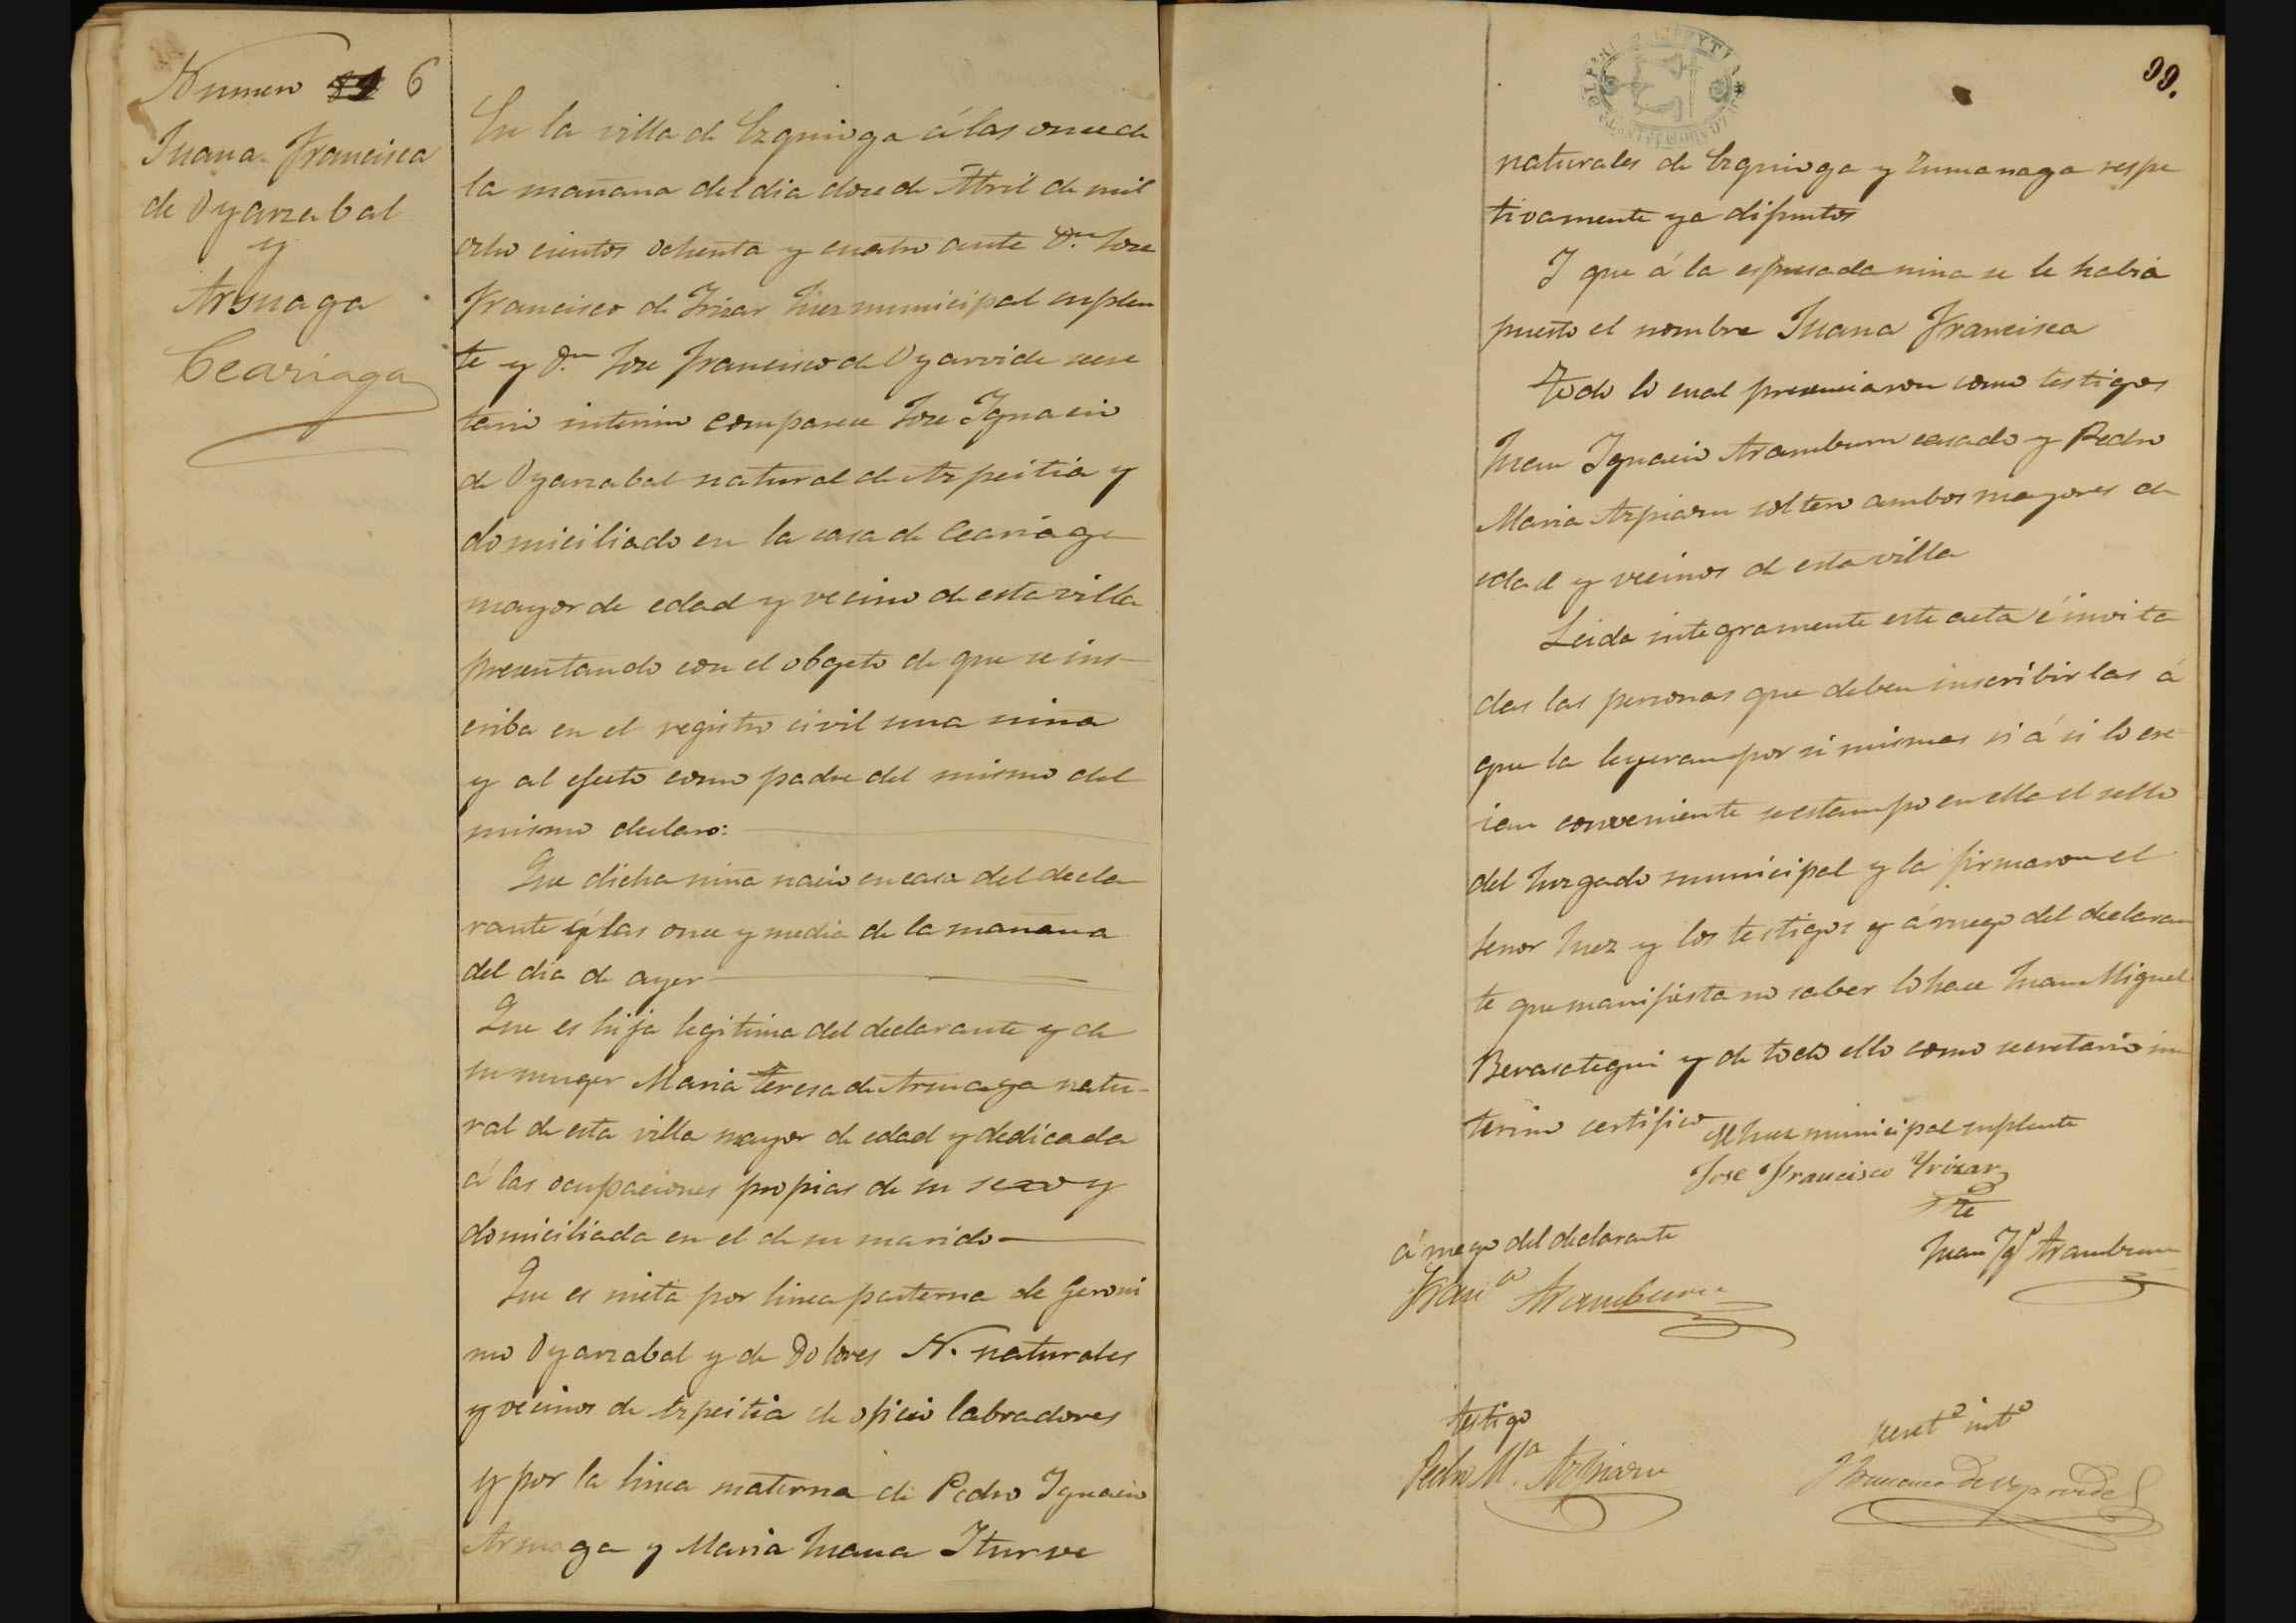 Numero 6
Juana Francisca
de Oyarzabal
y
Arsuaga
Ceariaga
En la villa de Ezquioga á las once de
la mañana del dia doze de Abril de mil
ocho cientos ochenta y cuatro ante Dn Jose
Francisco de Irizar Juez municipal suplen
te y Dn Jose Francisco de Oyarvide secre
tario interino comparece Jose Ignacio
de Oyarzabal natural de Azpeitia y
domiciliado en la casa de Ceariaga
mayor de edad y vecino de esta villa
presentando con el obgeto de que se ins-
criba en el registro civil una niña
y al efecto como padre del mismo del
mismo declaro:
Que dicha niña nacio en casa del decla
rante á las once y media de la mañana
del dia de ayer
Que es hija legitima del declarante y de
su muger Maria Teresa de Arsuaga natu-
ral de esta villa mayor de edad y dedicada
á las ocupaciones propias de su sexo y
domiciliada en el de su marido
Que es nieta por linea parterna de Geroni
mo Oyarzabal y de Dolores N. naturales
y vecinos de Azpeitia de oficio labradores
y por la linea materna de Pedro Ignacio
Arsuaga y Maria Juana Iturve
99.
naturales de Ezquioga y Zumarraga respe
tivamente ya difuntos
I que á la espresada niña se le habia
puesto el nombre Juana Francisca
Todo lo cual presenciaron como testigos
Juan Ignacio Aramburu casado y Pedro
Maria Azpiazu soltero ambos mayores de
edad y vecinos de esta villa
Leida integramente este acta é invita
das las personas que deben inscribirlas á
que la leyeran por si mismas si á si lo cre
ian conveniente se estampo en ella el sello
del Juzgado municipal y la firmaron el
señor Juez y los testigos y á ruego del declaran
te que manifiesta no saber lo hace Juan Miguel
Berasategui y de todo ello como secretario in
terino certifico
El Juez municipal suplente
Jose Francisco Yrizar
á ruego del declarante
Juan Igo Aramburu
Franco Aramburu
testigo
Pedro M.a Azpiazu
secreto into
Francisco de Oyarvide